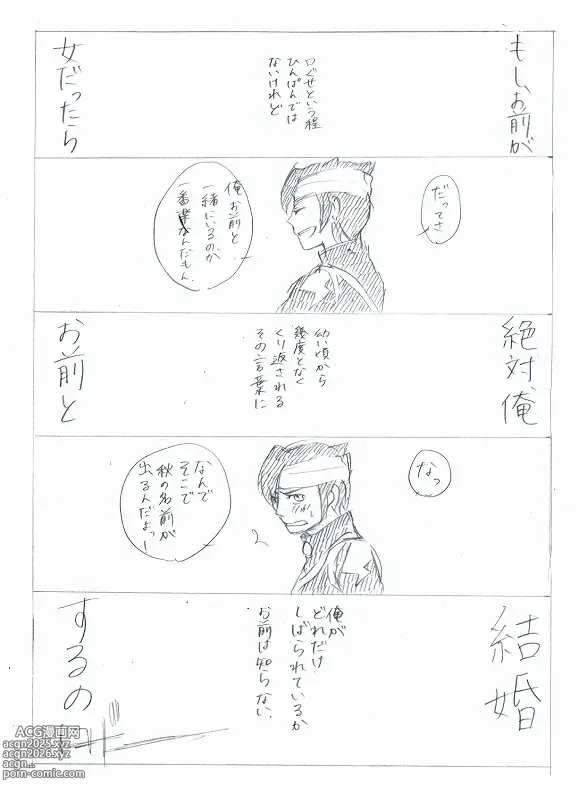 もし、お前が
口ぐせという程
ひんぱんでは
ないけれど
女だったら
だってさ
俺お前と
一緒にいるのが
一番楽なんだもん。
絶対俺
幼い頃から
幾度となく
くり返される
その言葉に
お前と
なっ
なんで
そこで
秋の名前が
出るんだよっー
結婚
俺が
どれだけ
しばられているか
お前は知らない。
するの
ACG漫画网
acgn2025.xyz
acgn2026.xyz
acgn...
porn-comic.com